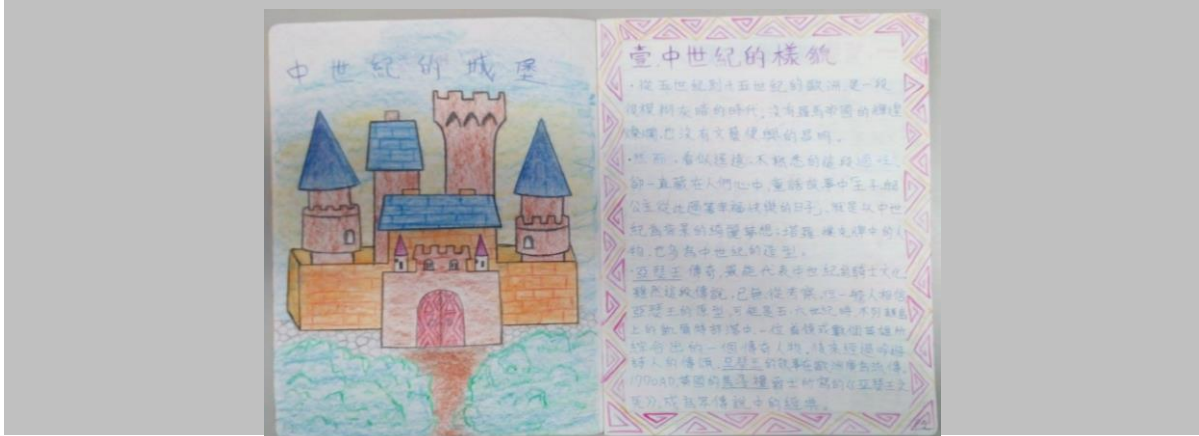 中世紀的城堡
壹、中世紀的樣貌
·從五世紀到十五世紀的歐洲,是一段
很模糊灰暗的時代;沒有羅馬帝國的輝煌
燦爛,也沒有文藝復興的昌明。
·然而,看似遙遠、不熟悉的這段過往,
卻一直藏在人們心中,童話故事中「王子與
公主從此過著幸福快樂的日子」,就是以中世
紀為背景的綺麗夢想;塔羅牌中的人
物,也多為中世紀的造型。
·亞瑟王傳奇,最能代表中世紀的騎士文化
雖然這段傳說,已無從考察,但一般人相信
亞瑟王的原型,可能是五、六世紀時,不列顛島
上的凱爾特部落中,一位首領或數個英雄所
綜合出的一個傳奇人物,後來經過吟遊
詩人的傳頌,亞瑟王的故事在歐洲廣為流傳,
英國的 爵士所寫的《亞瑟王之
死》,成就 傳說中的經典。